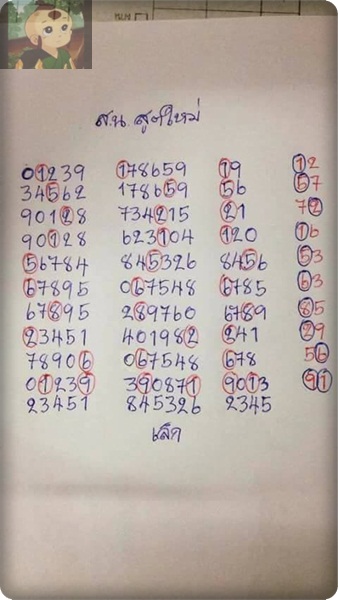 ส.น. สูตรใหม่
01239 178659 19 12
34562 178659 56 57
90128 734215 21 72
90128 623104 120 16
56784 845326 8456 53
67895 067548 6785 63
67895 289760 6789 85
23451 401982 241 29
78906 067548 678 56
01239 390871 9013 91
23451 845326 2345
เลิก